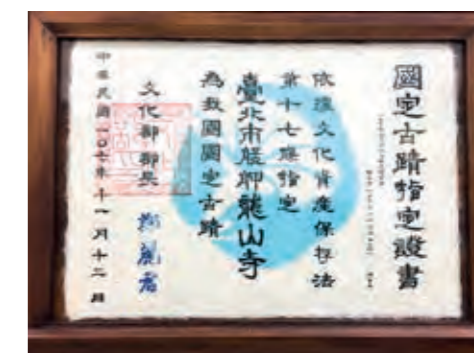 國定古蹟指定證書
依據文化資產保存法
第十七條指定
臺北市艋舺龍山寺
為我國國定古蹟
文化部部長
中華民國一〇七年十一月十二日